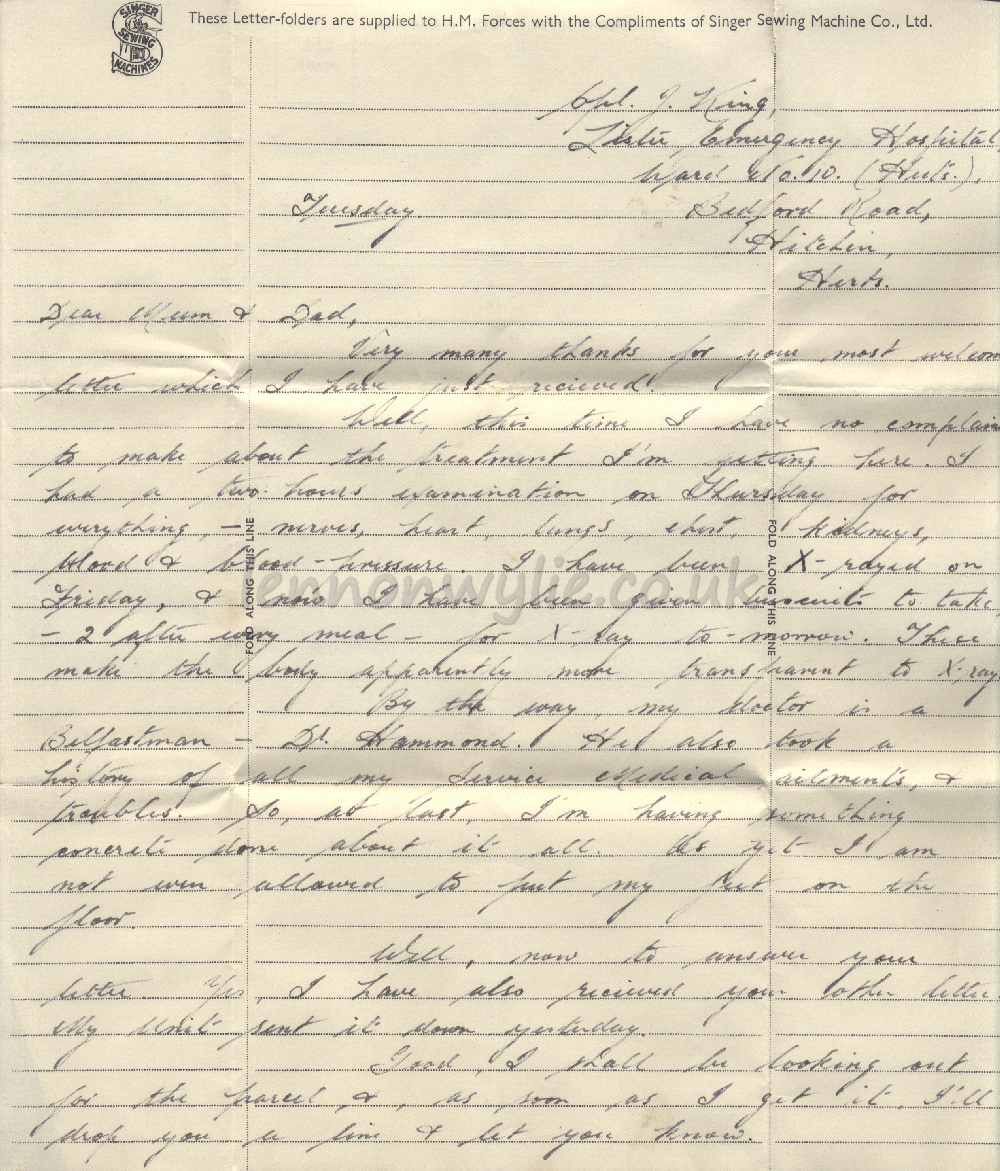 SINGER
SEWING
MACHINES
These Letter-folders are supplied to H.M. Forces with the Compliments of Singer Sewing Machine Co., Ltd.
Cpl. J. King,
Lister Emergency Hospital
Ward No. 10. (Huts.),
Tuesday Bedford Road,
Hitchin,
Herts.
Dear Mum & Dad,
Very many thanks for your most welcom
letter which I have just recieved.
Well, this time I have no complain
to make about the treatment I'm getting here. I
had a two hours examination on Thursday for
everything, – nerves, heart, lungs, chest, kidneys,
blood & blood-pressure. I have been X-rayed on
Friday, & now I have been given biscuits to take
– 2 after every meal – for X-ray to-morrow. These
make the body apparently more transparent to X-ray
By the way, my doctor is a
Belfastman – Dr. Hammond. He also took a
history of all my Service Medical ailments, &
troubles. So, at last, I'm having something
concrete done about it all. As yet I am
not even allowed to put my feet on the
floor.
Well, now to answer your
letter. Yes, I have also recieved your other letter
My Unit sent it down yesterday.
Good, I shall be looking out
for the parcel &, as soon as I get it, I'll
drop you a line & let you know.
FOLD ALONG THIS LINE
FOLD ALONG THIS LINE
ennonwylie.co.uk